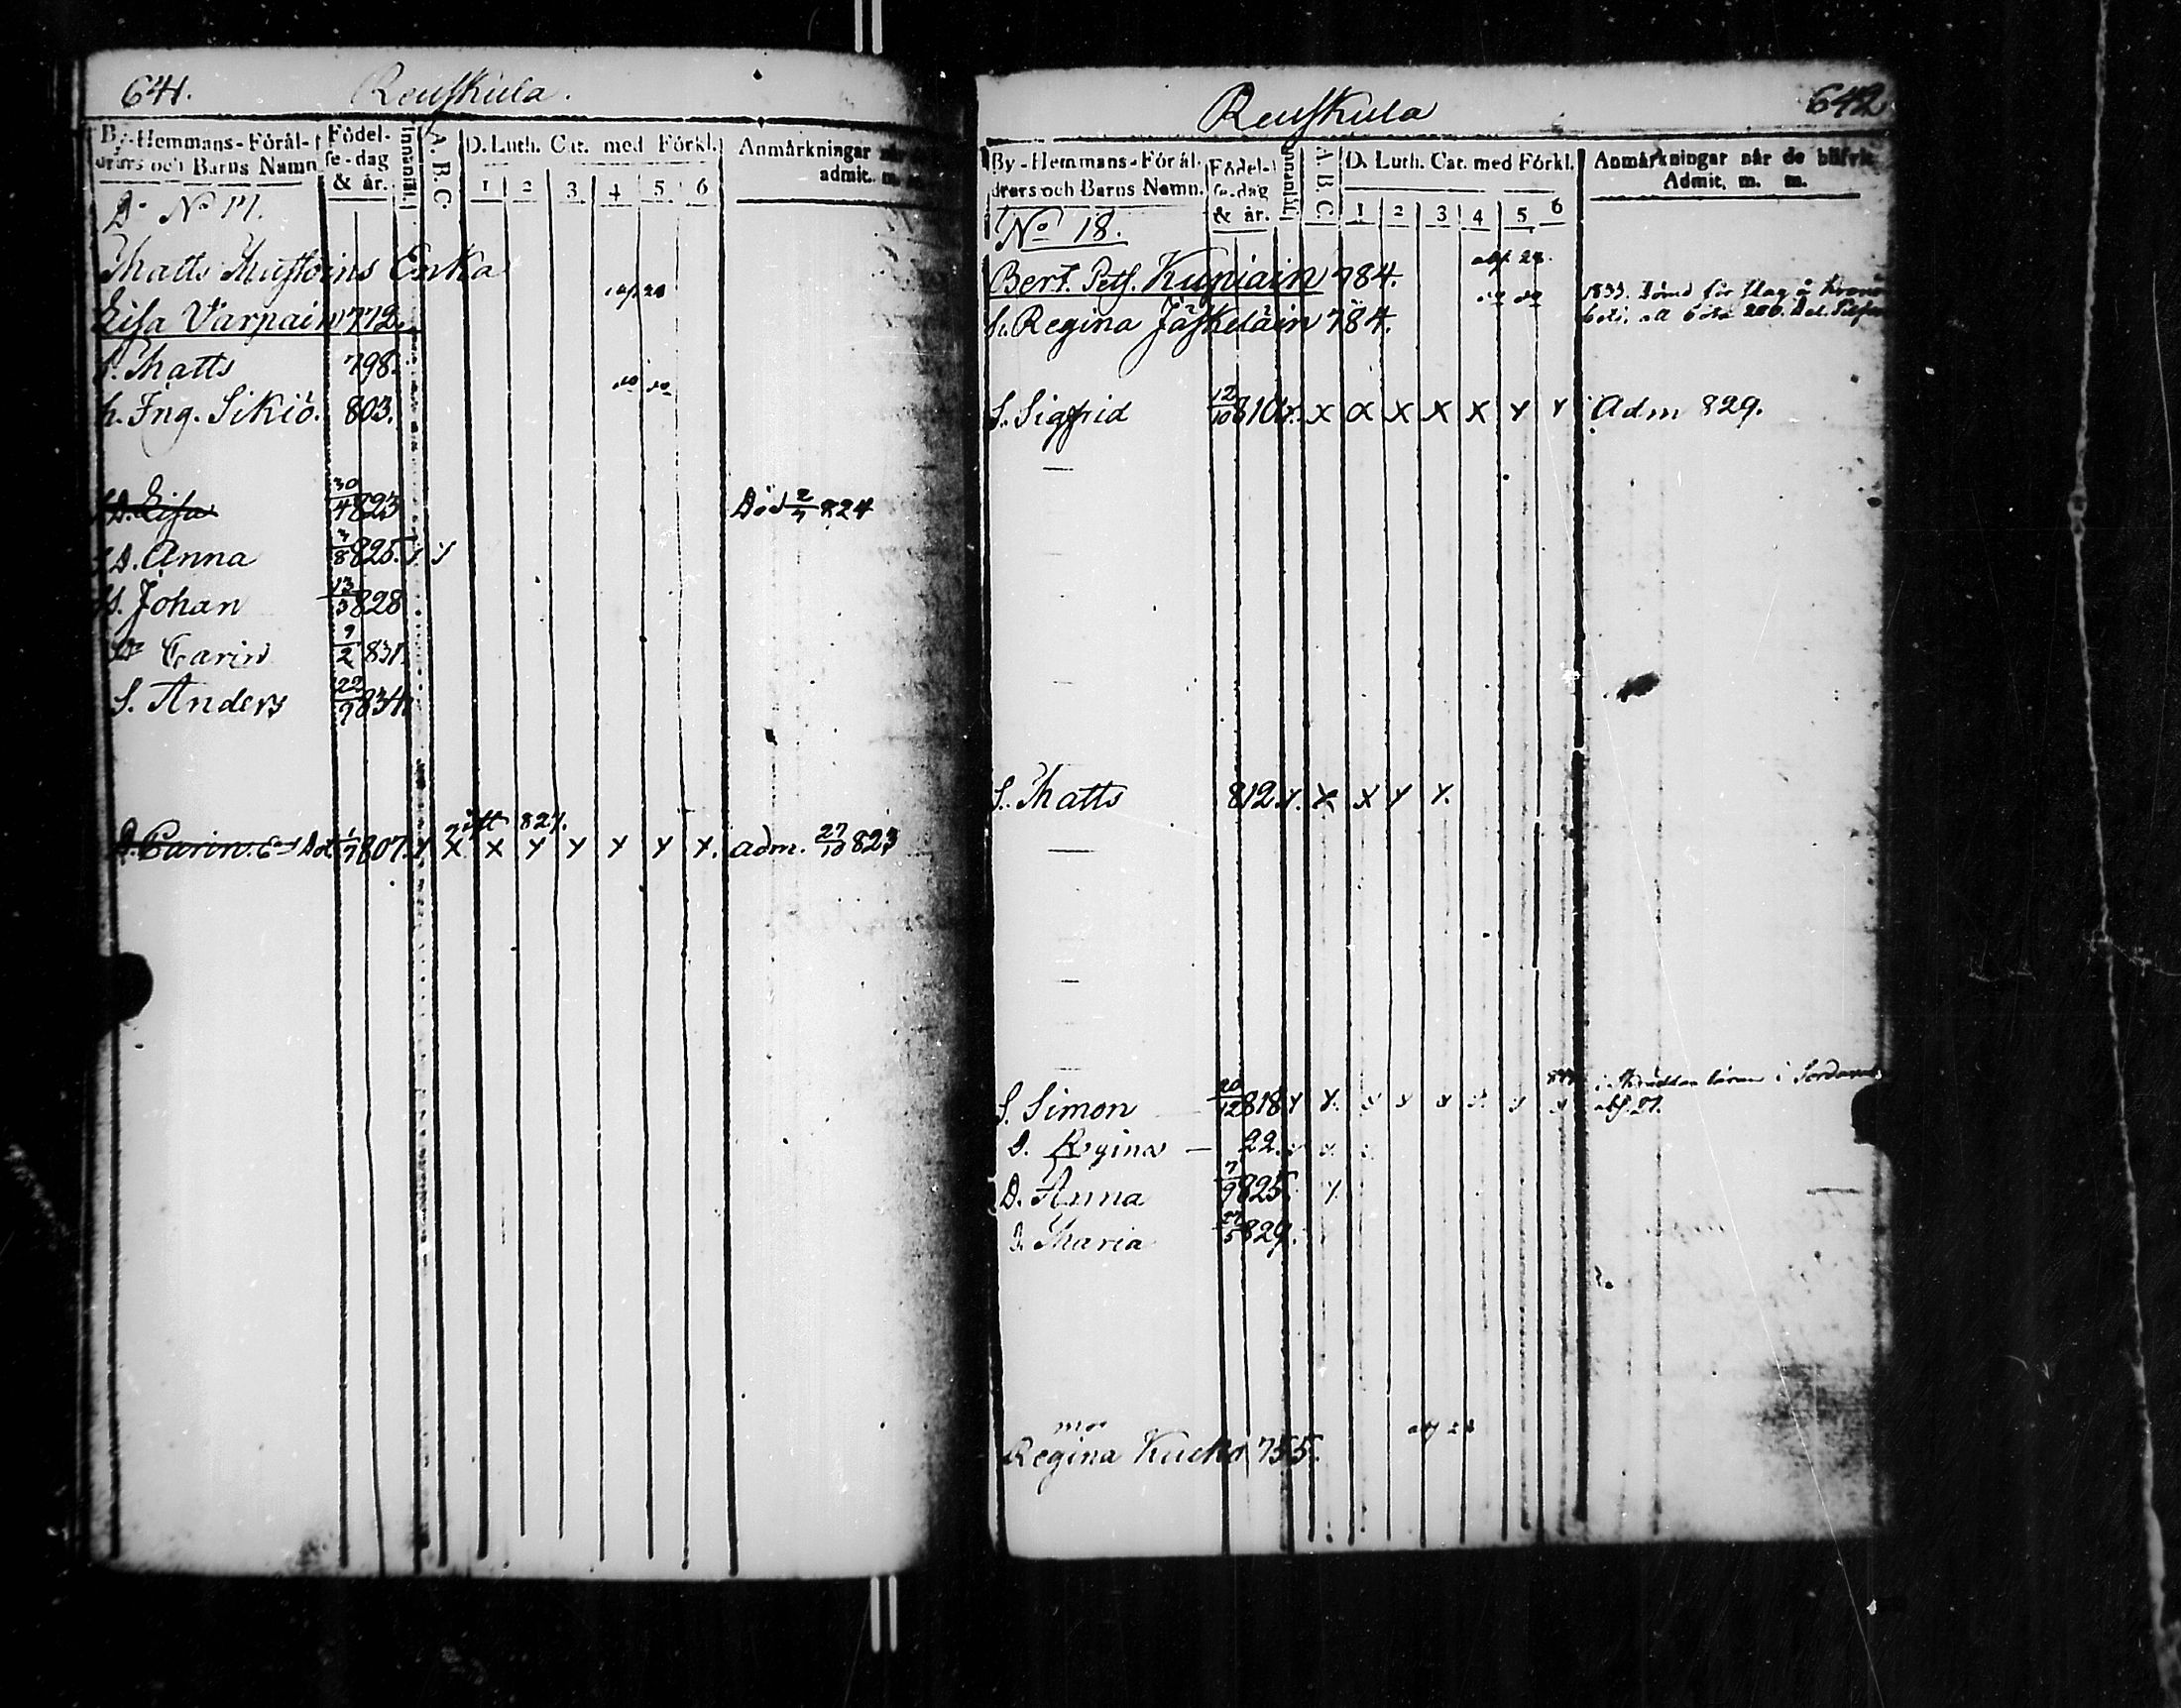 641. Reuskula.
By-Hemmans-Föräl-
drars och Barns Namn
Födel-
se-dag
& år.
Innanläs.
A.B.C.
D. Luth. Cat. med Förkl.
1 2 3 4 5 6
Anmärkningar när
admit. m.
Do No 17.
Matts Mustoins Enka
Lisa Varpain 772.
S. Matts 798.
h. Ing. Sikiö. 803.
D. Lisa 30/4 823 Död 2/7 824
D. Anna 3/8 825.
S. Johan 13/3 828
Dr Carin 9/2 831.
S. Anders 22/9 834
gift 827.
D. Carin 1/7 807. x x x y y y y y. adm. 27/10 823
Reuskula 642
By-Hemmans-Föräl-
drars och Barns Namn.
Födel-
se-dag
& år.
Innanläs.
A.B.C.
D. Luth. Cat. med Förkl.
1 2 3 4 5 6
Anmärkningar når de blifvit
Admit, m. m.
No 18.
Bert. Pets. Kupiain 784.
h. Regina Jäskeläin 784.
1833. för slag å
böta 200.
S. Sigfrid 12/10 810 x. x x x x x y y Adm 829.
S. Matts 812 y. x x y y.
S. Simon 20/12 818 y y. x x x x x x
D. Regina — 22.
D. Anna 7/9 825. y.
D. Maria 27/5 829.
mor
Regina Kucko 755.